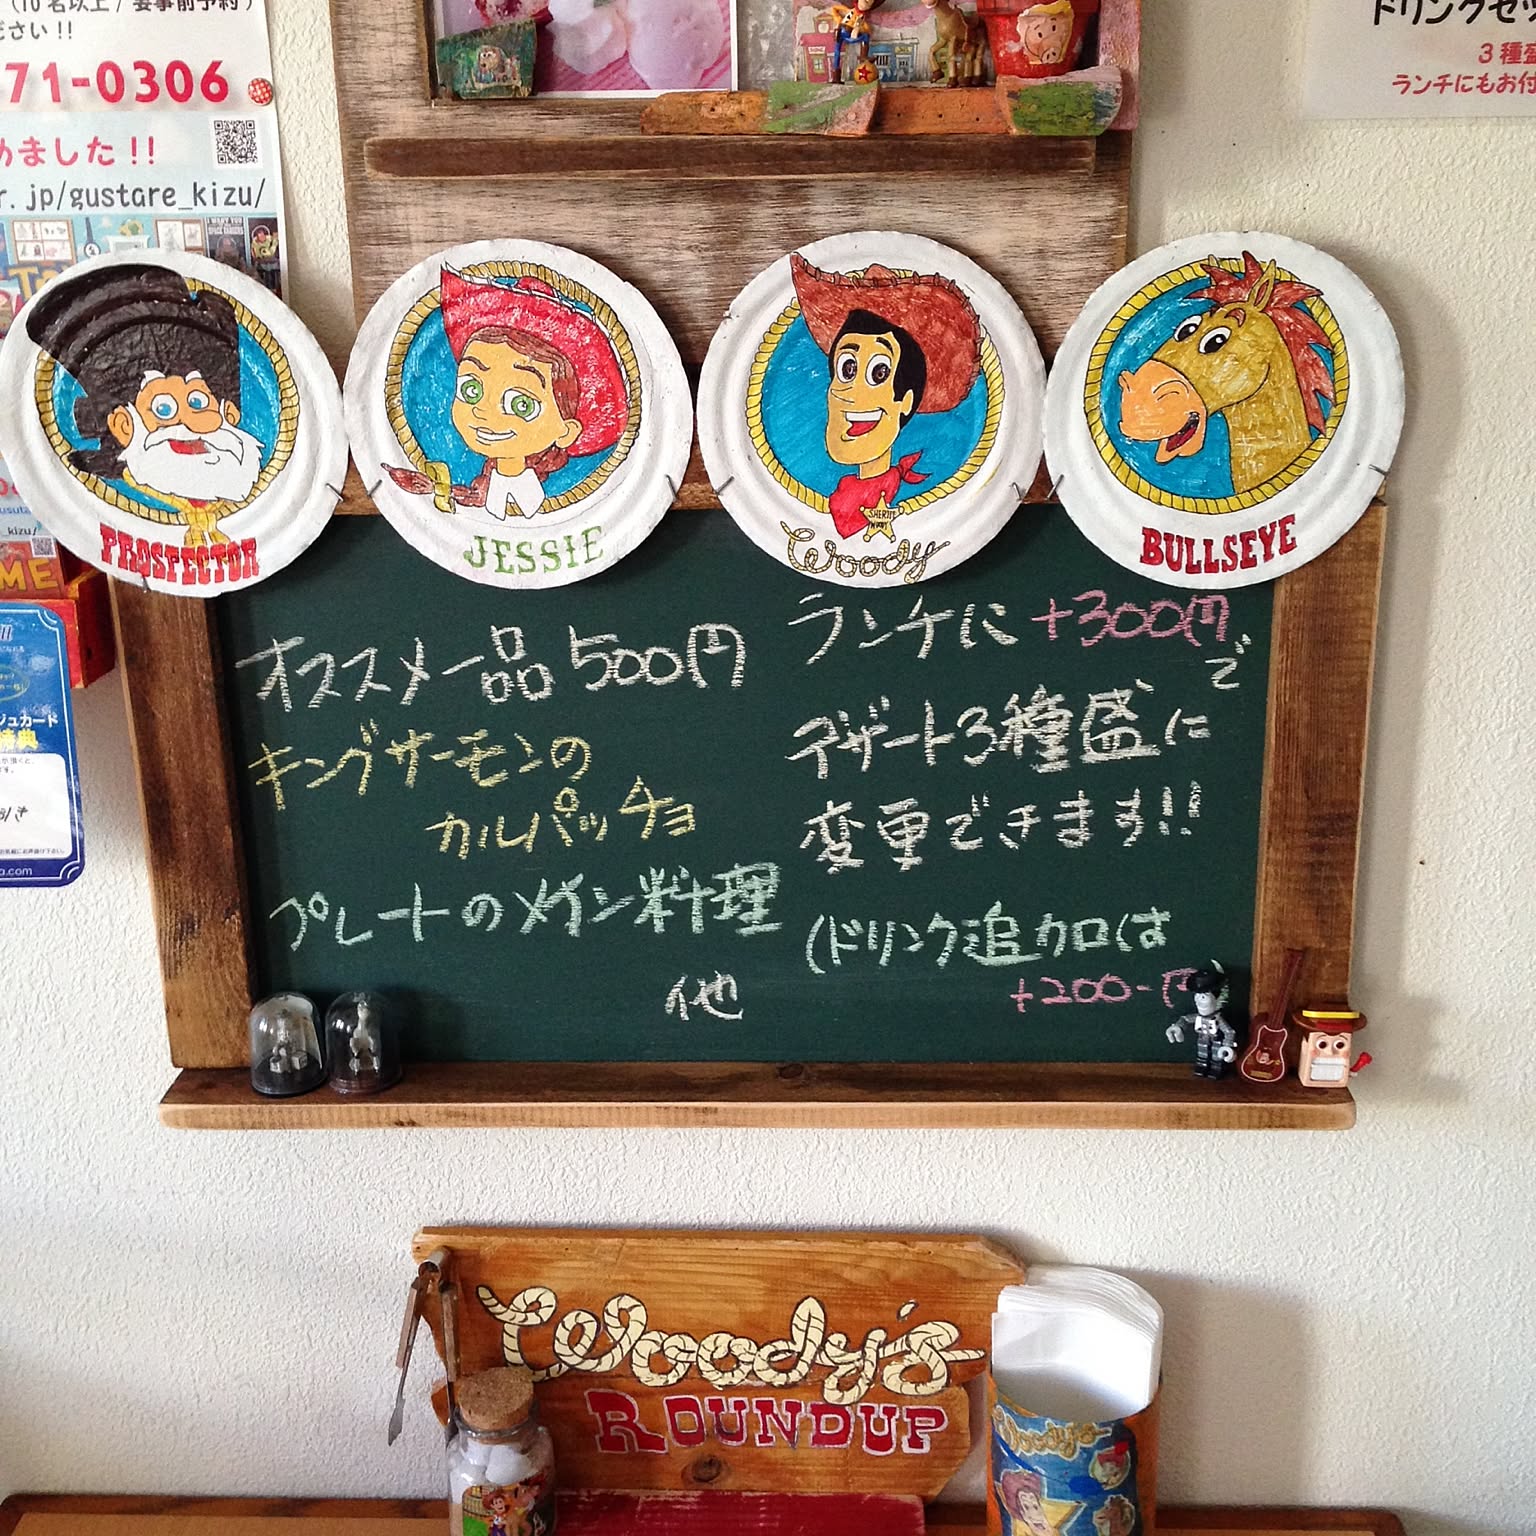 (10名以上/要事前予約)
ださい!!
71-0306
めました!!
r.jp/gustare_kizu/
ドリンクセッ
3種盛
ランチにもお付
PROSPECTOR
JESSIE
SHERIFF
WOODY
Woody
BULLSEYE
オススメ一品 500円
キングサーモンの
カルパッチョ
プレートのメイン料理
他
ランチに +300円
で
デザート3種盛に
変更できます!!
(ドリンク追加は
+200-円
kizu/
ME
ュカード
特典
a.com
Woody's
ROUNDUP
Woody's